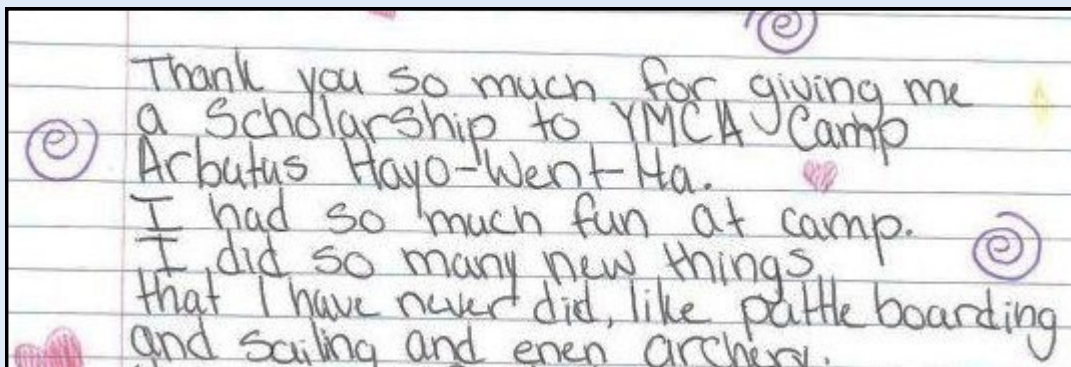 Thank you so much for giving me
a Scholarship to YMCA Camp
Arbutus Hayo-Went-Ha.
I had so much fun at camp.
I did so many new things
that I have never did, like pattle boarding
and sailing and enen archery.